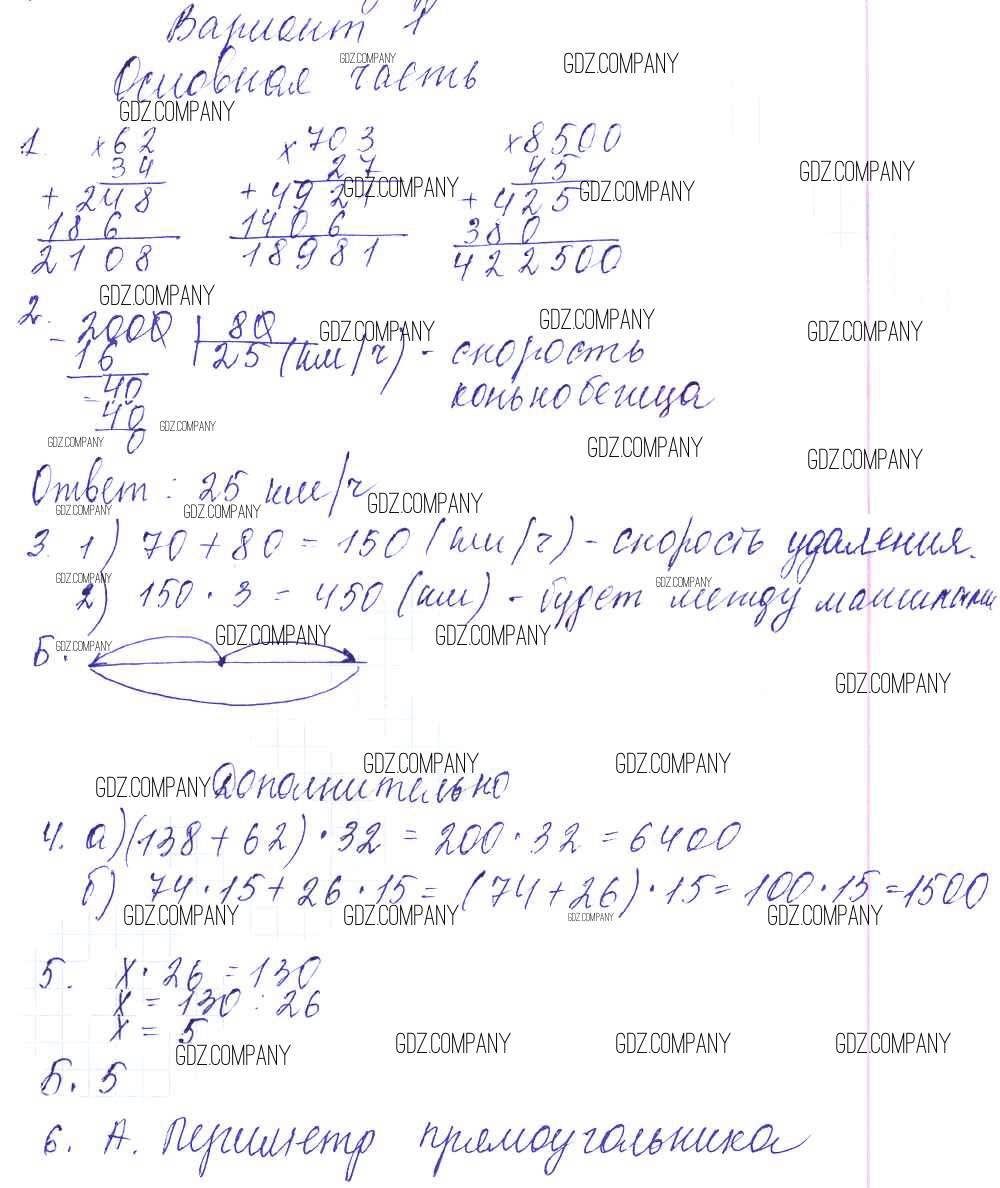 Вариант 1
Основная часть
1. ×62 ×703 ×8500
34 27 45
+248 +4921 +425
186 1406 380
2108 18981 422500
2. -2000 | 80
16 25 (км/ч) - скорость
=40 конькобежца
40
0
Ответ: 25 км/ч
3. 1) 70 + 80 = 150 (км/ч) - скорость удаления.
2) 150 · 3 = 450 (км) - будет между машинами
Б.
Дополнительно
4. а) (138 + 62) · 32 = 200 · 32 = 6400
б) 74 · 15 + 26 · 15 = (74 + 26) · 15 = 100 · 15 = 1500
5. х · 26 = 130
х = 130 : 26
х = 5
Б. 5
6. А. Периметр прямоугольника
GDZ.COMPANY